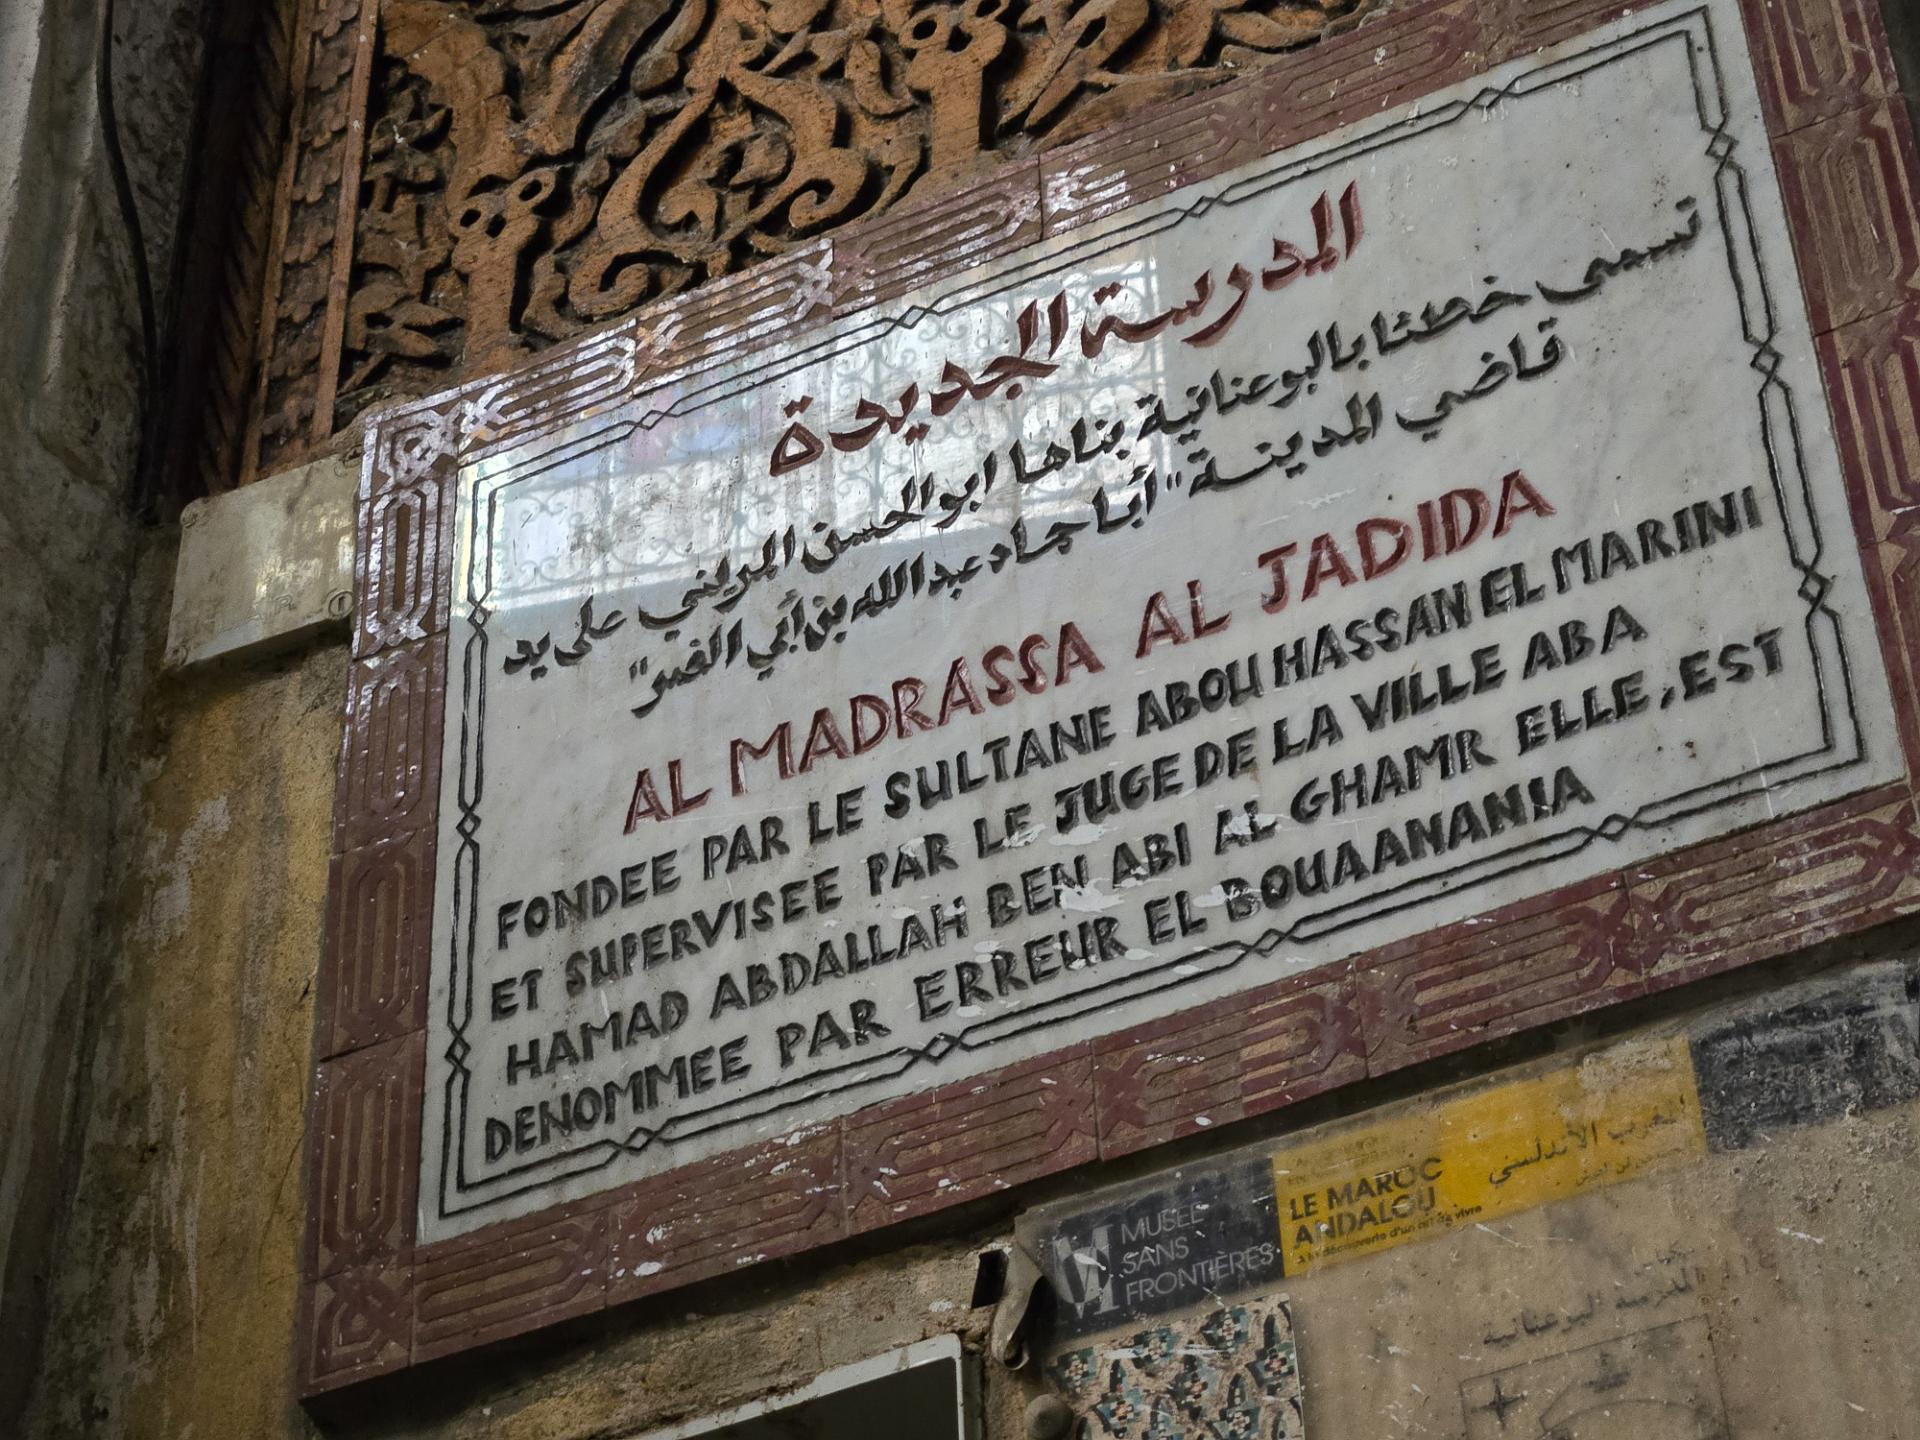 المدرسة الجديدة
تسمى خطئا بالبوعنانية بناها ابو الحسن المريني على يد
قاضي المدينة "أبا حماد عبد الله بن أبي الغمر"
AL MADRASSA AL JADIDA
FONDEE PAR LE SULTANE ABOU HASSAN EL MARINI
ET SUPERVISEE PAR LE JUGE DE LA VILLE ABA
HAMAD ABDALLAH BEN ABI AL GHAMR ELLE, EST
DENOMMEE PAR ERREUR EL BOUAANANIA
MUSEE
SANS
FRONTIÈRES
LE MAROC
ANDALOU
à la découverte d'un art de vivre
المغرب الأندلسي
المدرسة البوعنانية